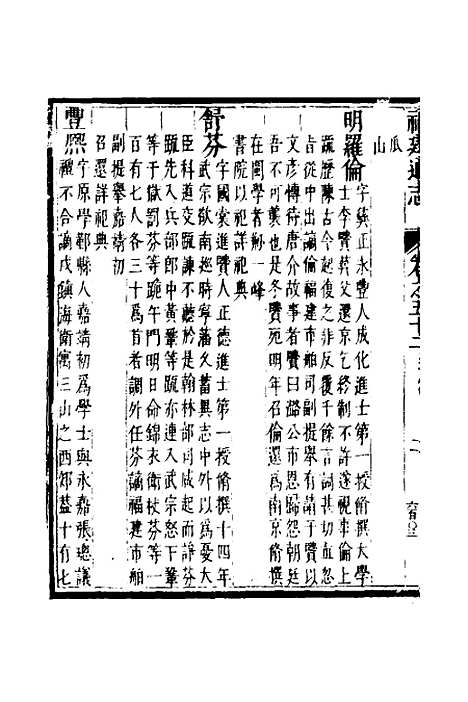 福建通志 卷之五十二
瓜
山
明羅倫字彝正永豐人成化進士第一授脩撰大學
士李賢葬父還京乞終制不許遂視事倫上
疏歷陳古今起復之非反覆千餘言詞甚切直忽
旨從中出謫倫福建市舶司副提舉有請于賢以
文彥博待唐介故事者賢曰潞公市恩歸怨朝廷
吾不可襲也是冬賢死明年召倫還爲南京脩撰
在閩學者勒一峰
書院以祀詳祀典
舒芬字國裳進賢人正德進士第一授脩撰十四年
武宗欲南巡時寧藩久蓄異志中外以爲憂大
臣科道交疏諫不聽芬是翰林部司咸起而諍芬
疏先入兵部郎中黃鞏等疏亦連入武宗怒下鞏
等于獄罰芬等跪午門明日命錦衣衛杖芬等一
百有七人各三十爲首者調外任芬謫福建市舶
副提舉嘉靖初
召還詳祀典
豐熙字原學鄞縣人嘉靖初爲學士與永嘉張璁議
禮不合謫戍鎮海衛寓三山之西郊蓋十有七